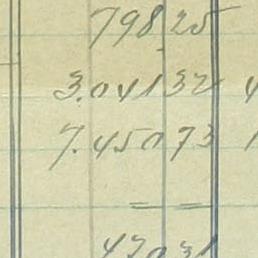 798.25
3.04132
7.45073
= =
47031